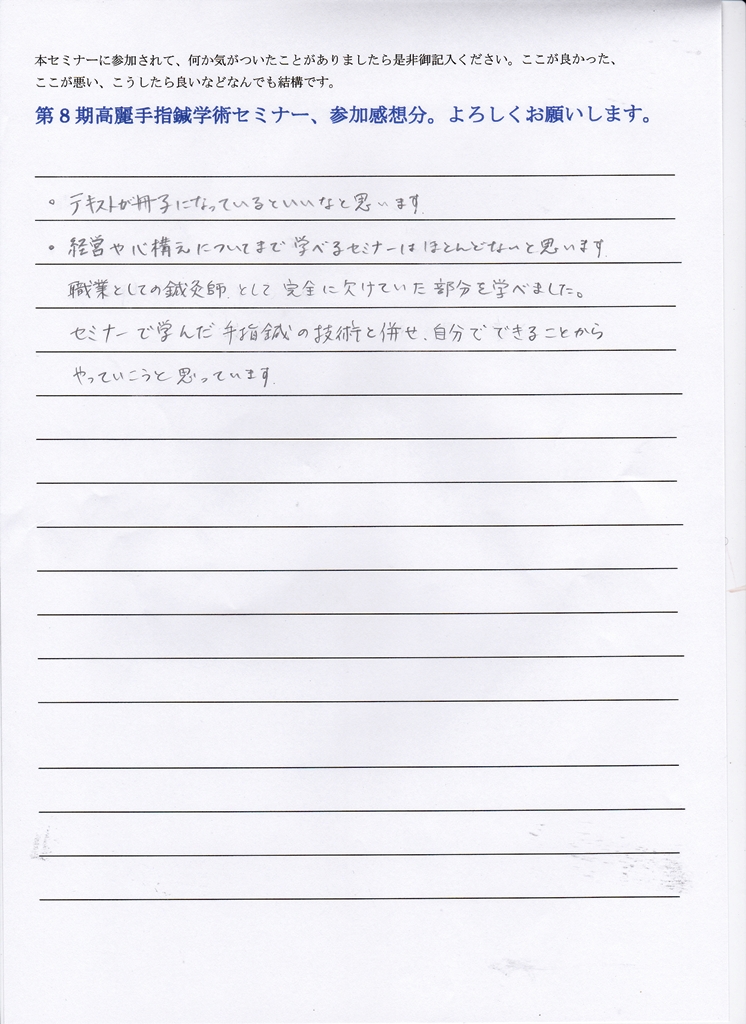 本セミナーに参加されて、何か気がついたことがありましたら是非御記入ください。ここが良かった、
ここが悪い、こうしたら良いなどなんでも結構です。
第8期高麗手指鍼学術セミナー、参加感想分。よろしくお願いします。
・テキストが冊子になっているといいなと思います
・経営や心構えについてまで学べるセミナーはほとんどないと思います
職業としての鍼灸師として完全に欠けていた部分を学べました。
セミナーで学んだ手指鍼の技術と併せ、自分でできることから
やっていこうと思っています